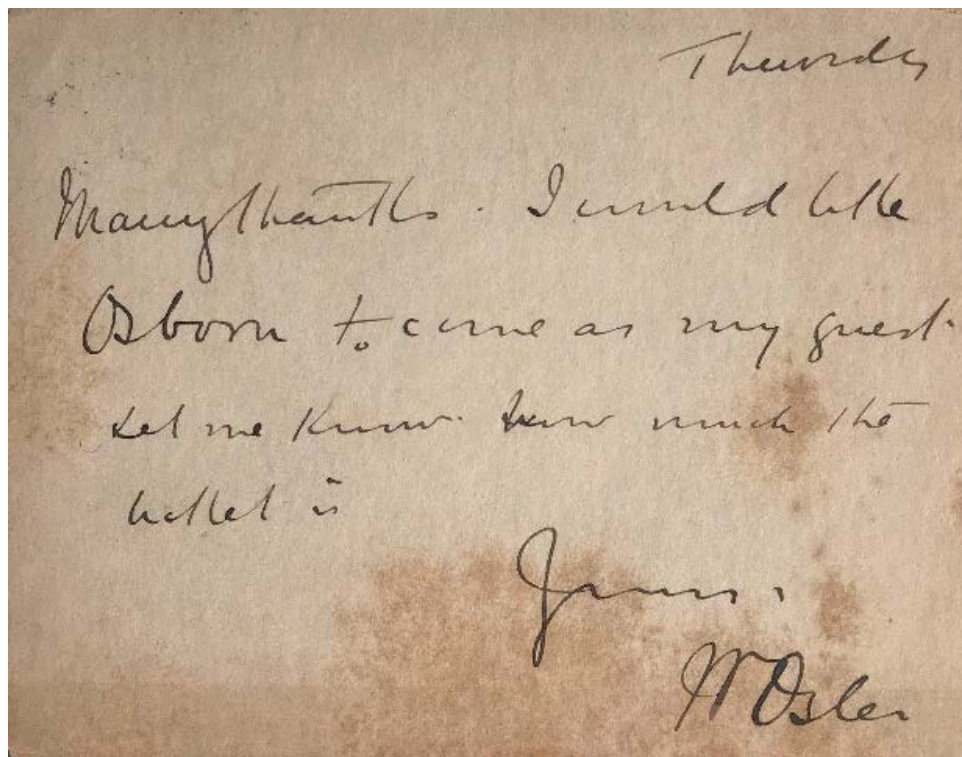 Thursday
Many thanks. I would like
Osborn to come as my guest.
Let me know how much the
ticket is
Yours,
Wm Osler